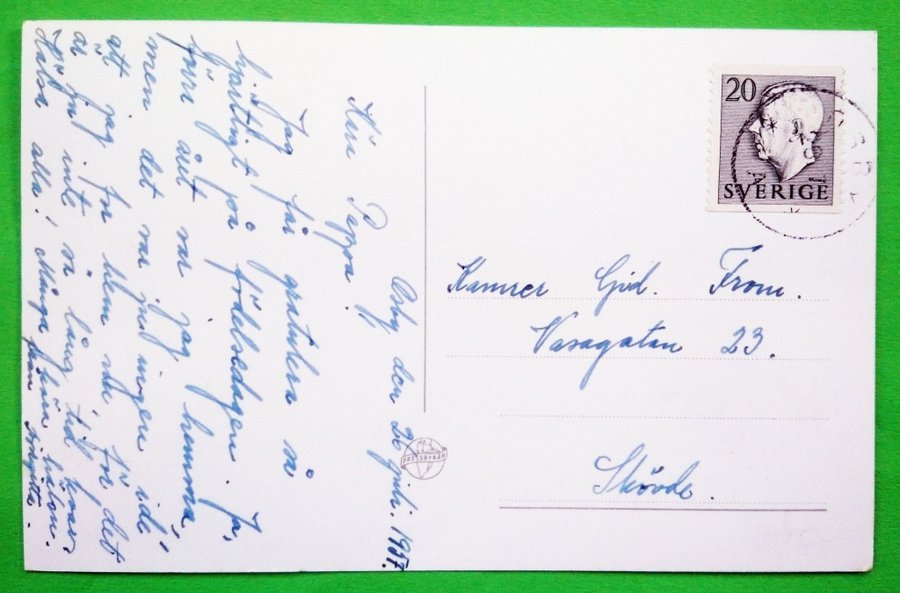 Osby den 26 juli. 1957.
Käre Pappa!
Jag får gratulera så
hjärtligt på födelsedagen. Ja,
förra året var jag hemma,
men det var ju ingen idé
att jag for hem nu, för det
är ju inte så lång tid kvar.
Hälsa alla! Många kära hälsn.
från Birgitta.
20
SVERIGE
Kamrer Gid. From.
Vasagatan 23.
Skövde.
PRESSBYRÅN